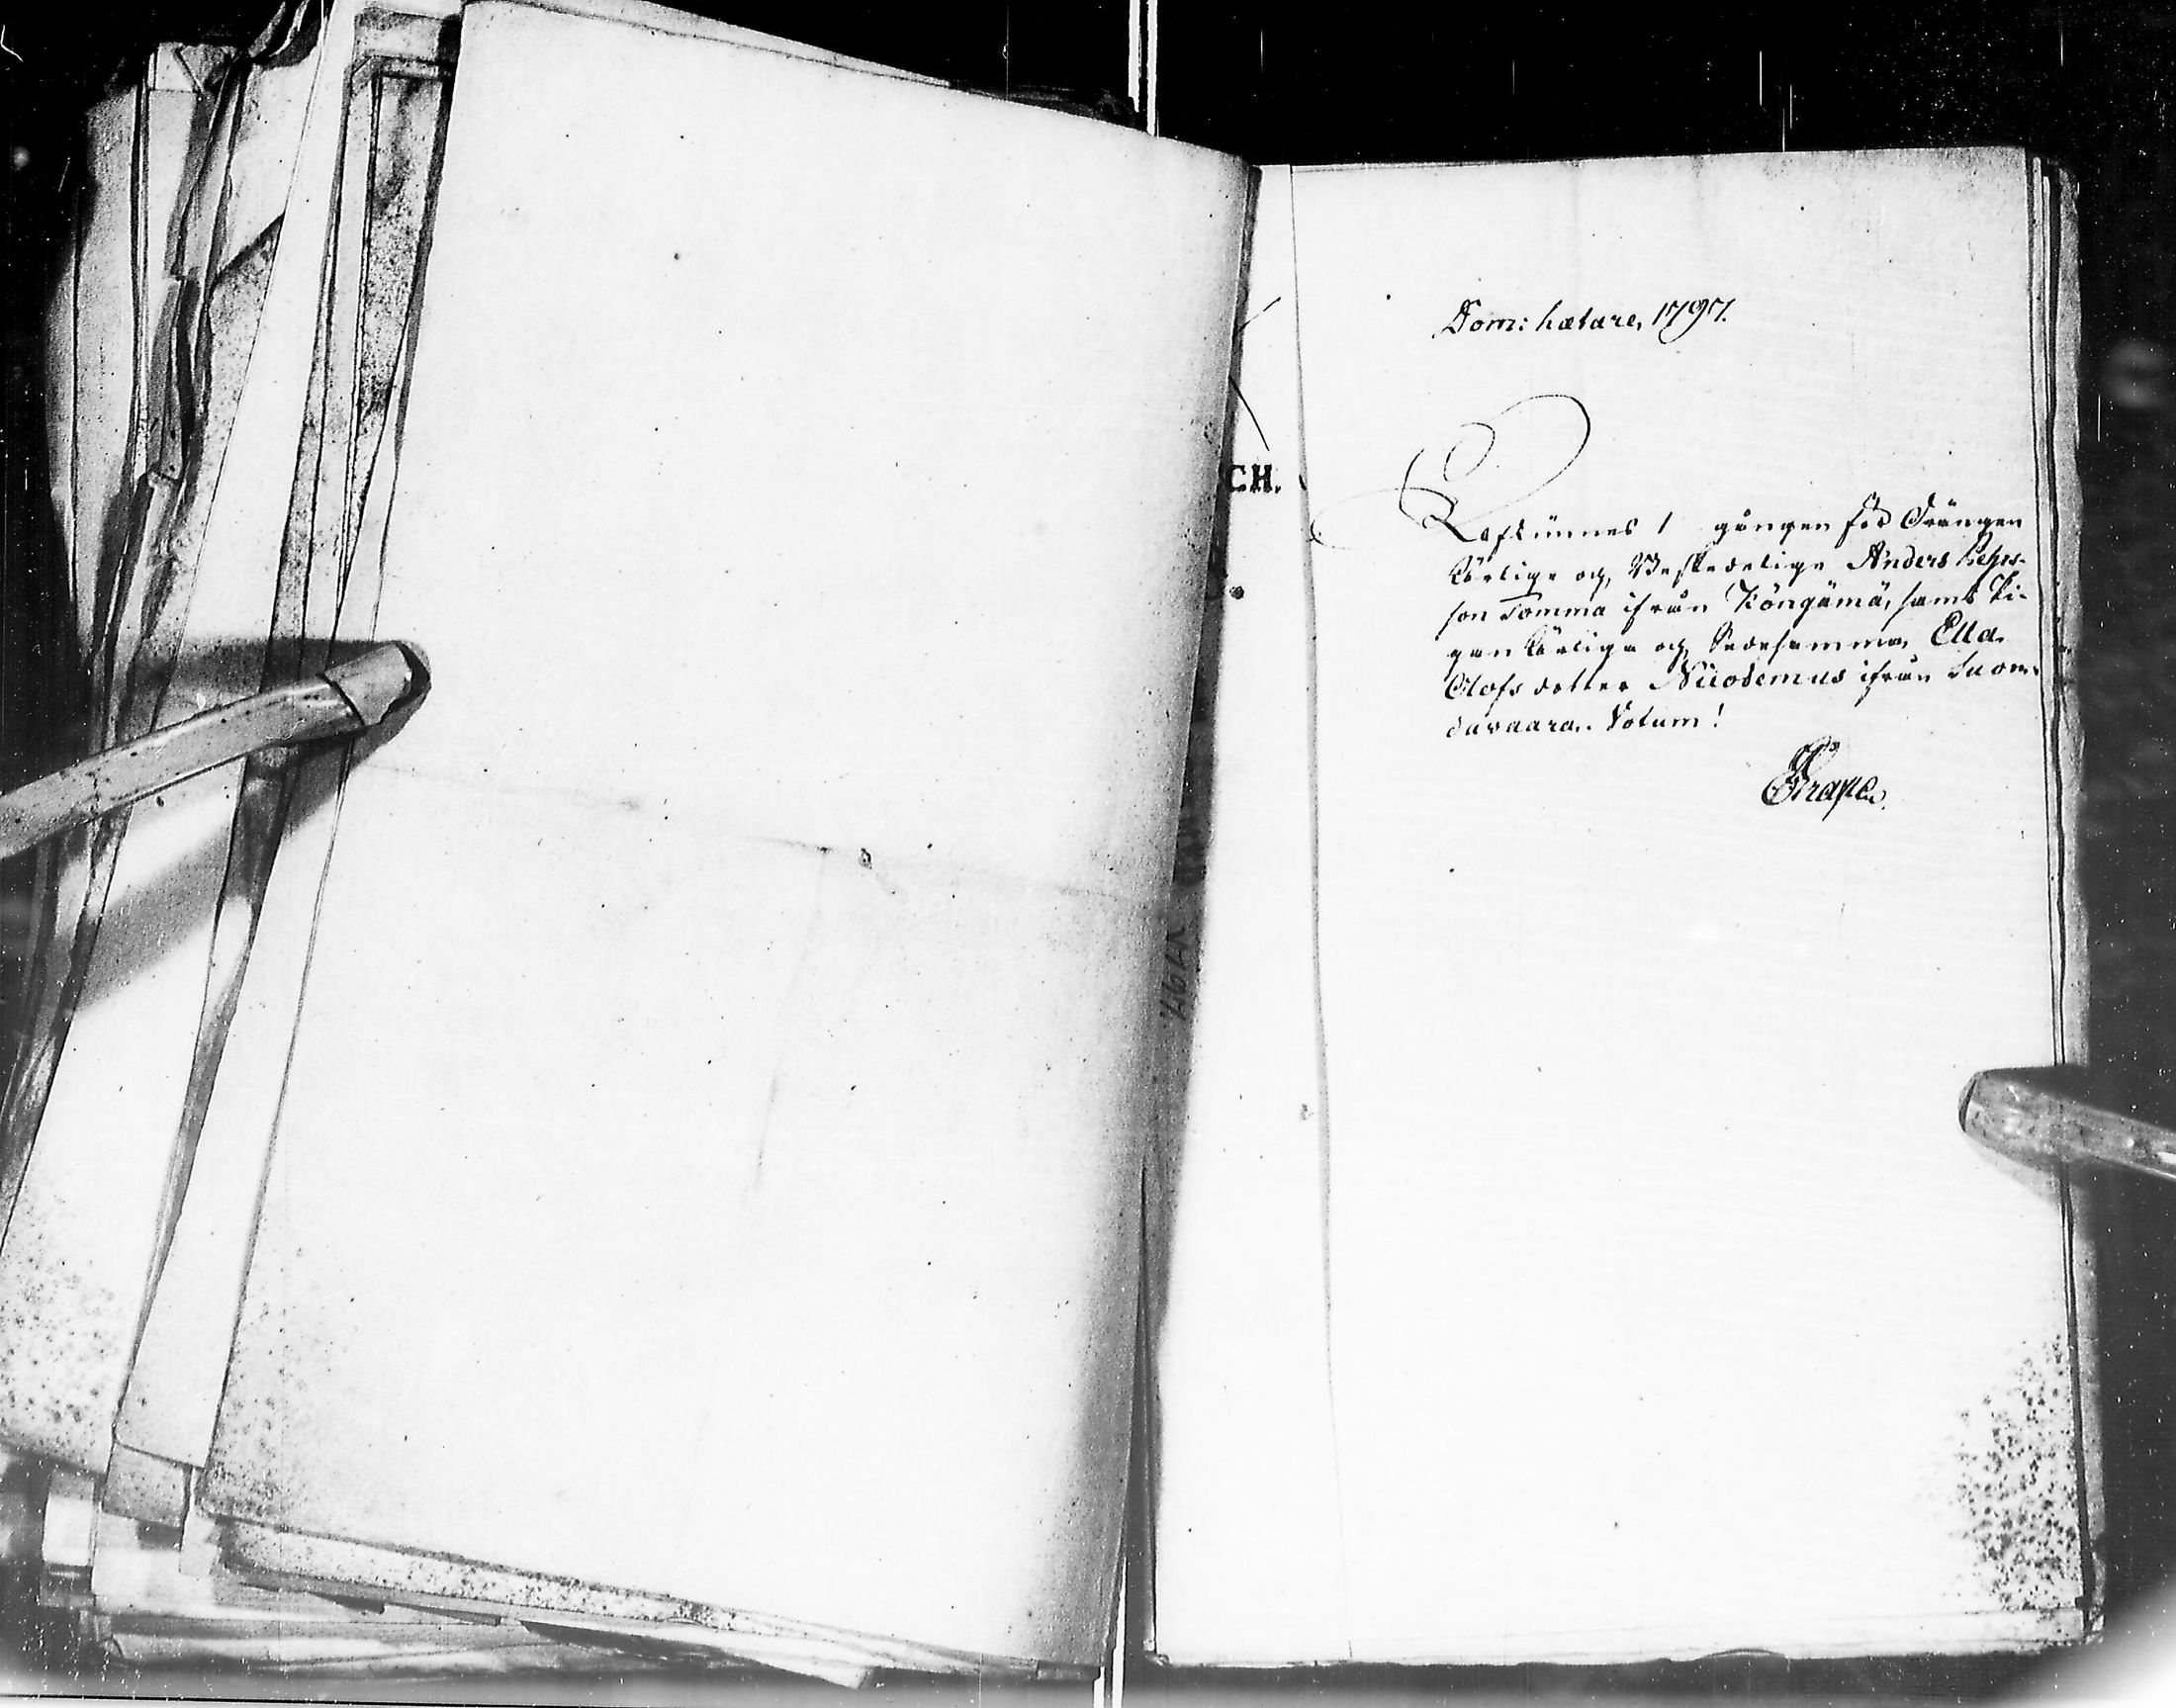 Dom: Lætare, 1797.
CH.
Afkunnas 1 gången för Drängen
Ärlige och Beskedelige Anders Pehrs-
son Tomma ifrån Köngämä, samt Pi-
gan Ärliga och Sedesamma Ella
Olofs dotter Nicodemus ifrån Suon-
davaara. Votum!
Grape
1797.